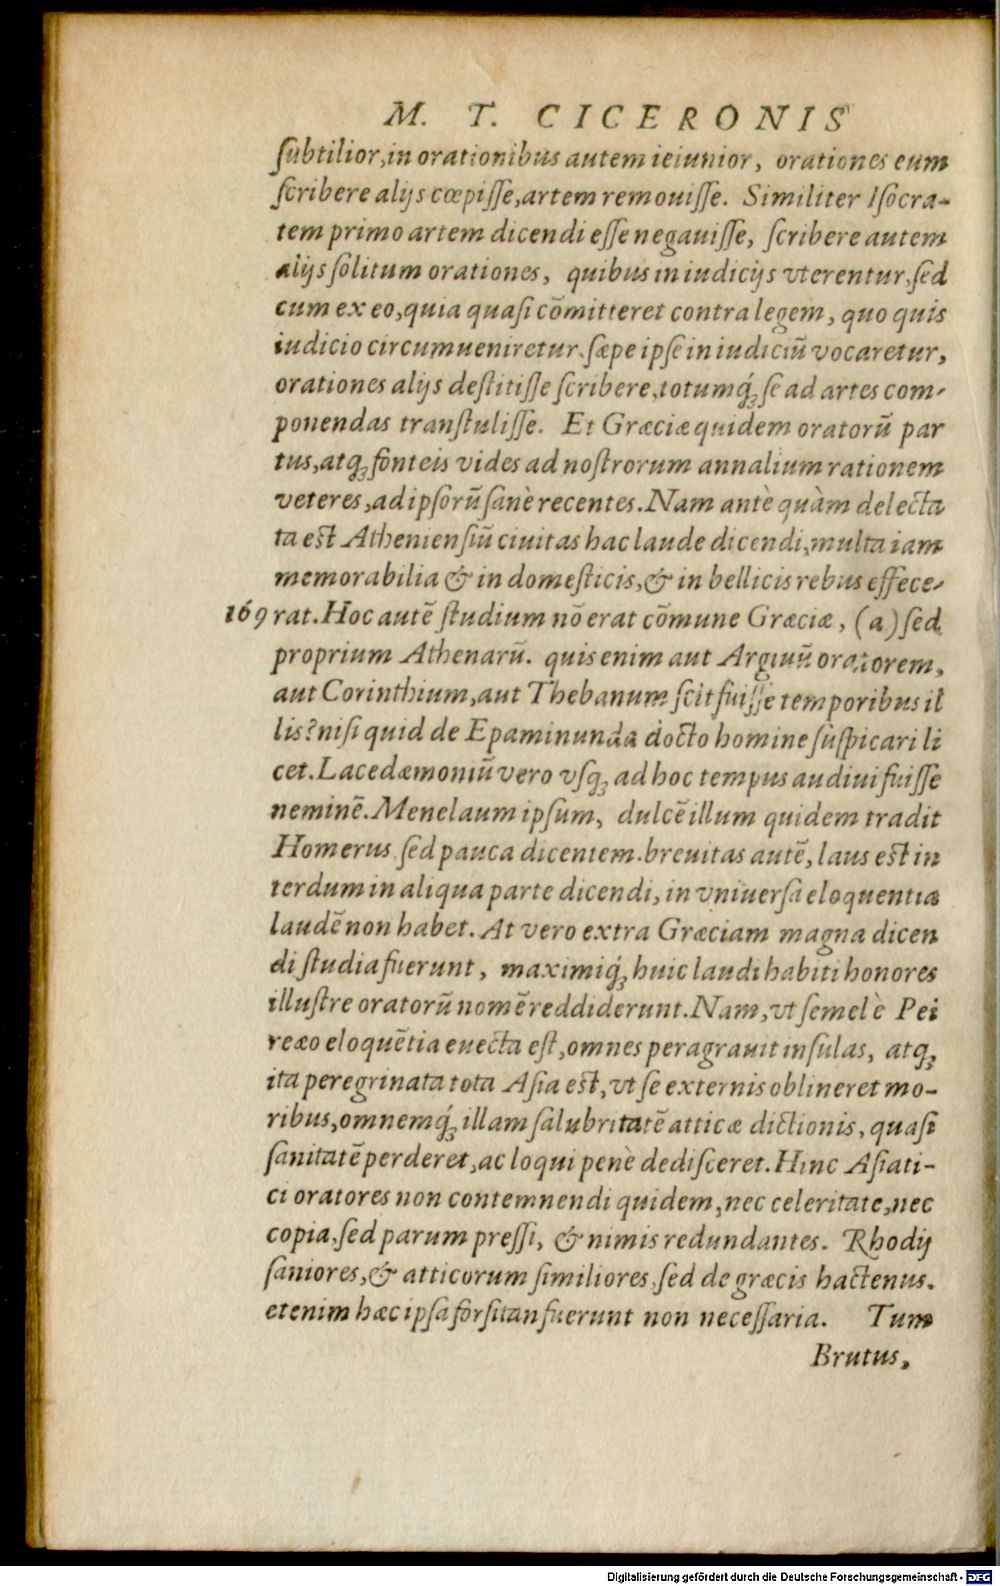 M. T. CICERONIS
ſubtilior, in orationibus autem ieiunior, orationes eum
ſcribere alijs cœpiſſe, artem remouiſſe. Similiter Iſocra-
tem primo artem dicendi eſſe negauiſſe, ſcribere autem
alijs ſolitum orationes, quibus in iudicijs vterentur, ſed
cum ex eo, quia quaſi cōmitteret contra legem, quo quis
iudicio circumueniretur, ſæpe ipſe in iudiciū vocaretur,
orationes alijs deſtitiſſe ſcribere, totumq́ꝫ ſe ad artes com-
ponendas tranſtuliſſe. Et Græciæ quidem oratorū par
tus, atqꝫ fonteis vides ad noſtrorum annalium rationem
veteres, ad ipſorū ſanè recentes. Nam antè quàm delecta
ta eſt Athenienſiū ciuitas hac laude dicendi, multa iam
memorabilia & in domeſticis, & in bellicis rebus effece-
169 rat. Hoc autē ſtudium nō erat cōmune Græciæ, (a) ſed
proprium Athenarū. quis enim aut Argiuū oratorem,
aut Corinthium, aut Thebanum ſcit fuiſſe temporibus il
lis? niſi quid de Epaminunda docto homine ſuſpicari li
cet. Lacedæmoniū vero vſqꝫ ad hoc tempus audiui fuiſſe
neminē. Menelaum ipſum, dulcē illum quidem tradit
Homerus, ſed pauca dicentem. breuitas autē, laus eſt in
terdum in aliqua parte dicendi, in vniuerſa eloquentia
laudē non habet. At vero extra Græciam magna dicen
di ſtudia fuerunt, maximiq́ꝫ huic laudi habiti honores
illuſtre oratorū nomē reddiderunt. Nam, vt ſemel è Pei
ræo eloquētia euecta eſt, omnes peragrauit inſulas, atqꝫ
ita peregrinata tota Aſia eſt, vt ſe externis oblineret mo-
ribus, omnemq́ꝫ illam ſalubritatē atticæ dictionis, quaſi
ſanitatē perderet, ac loqui penè dediſceret. Hinc Aſiati-
ci oratores non contemnendi quidem, nec celeritate, nec
copia, ſed parum preſſi, & nimis redundantes. Rhodij
ſaniores, & atticorum ſimiliores, ſed de græcis hactenus.
etenim hæc ipſa forſitan fuerunt non neceſſaria. Tum
Brutus,
Digitalisierung gefördert durch die Deutsche Forschungsgemeinschaft - DFG